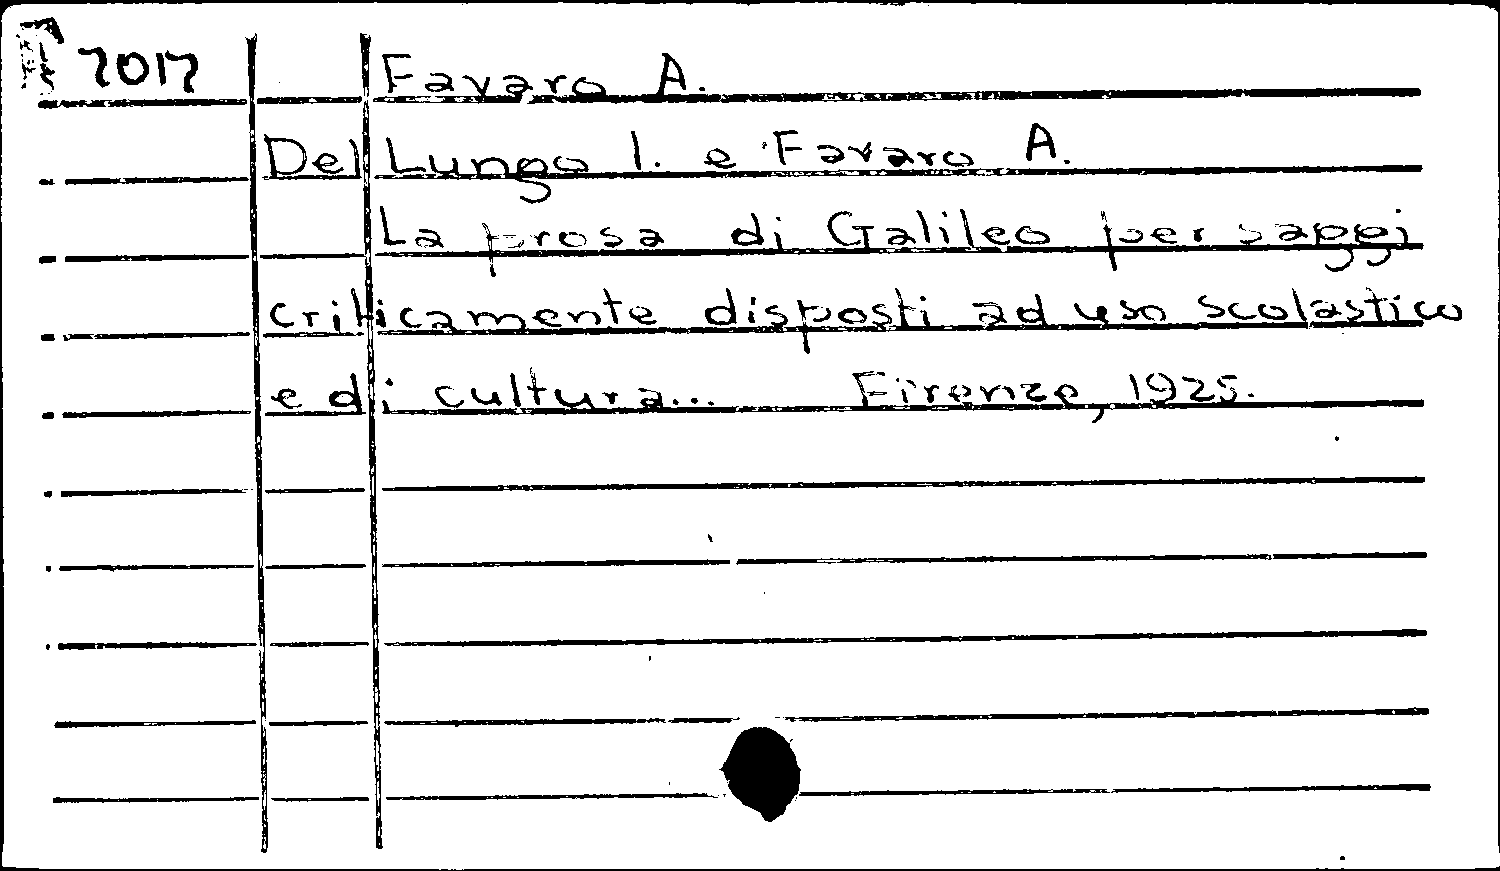 7017 Favaro A.
Del Lungo I. e Favaro A.
La prosa di Galileo per saggi
criticamente disposti ad uso scolastico
e di cultura... Firenze, 1925.